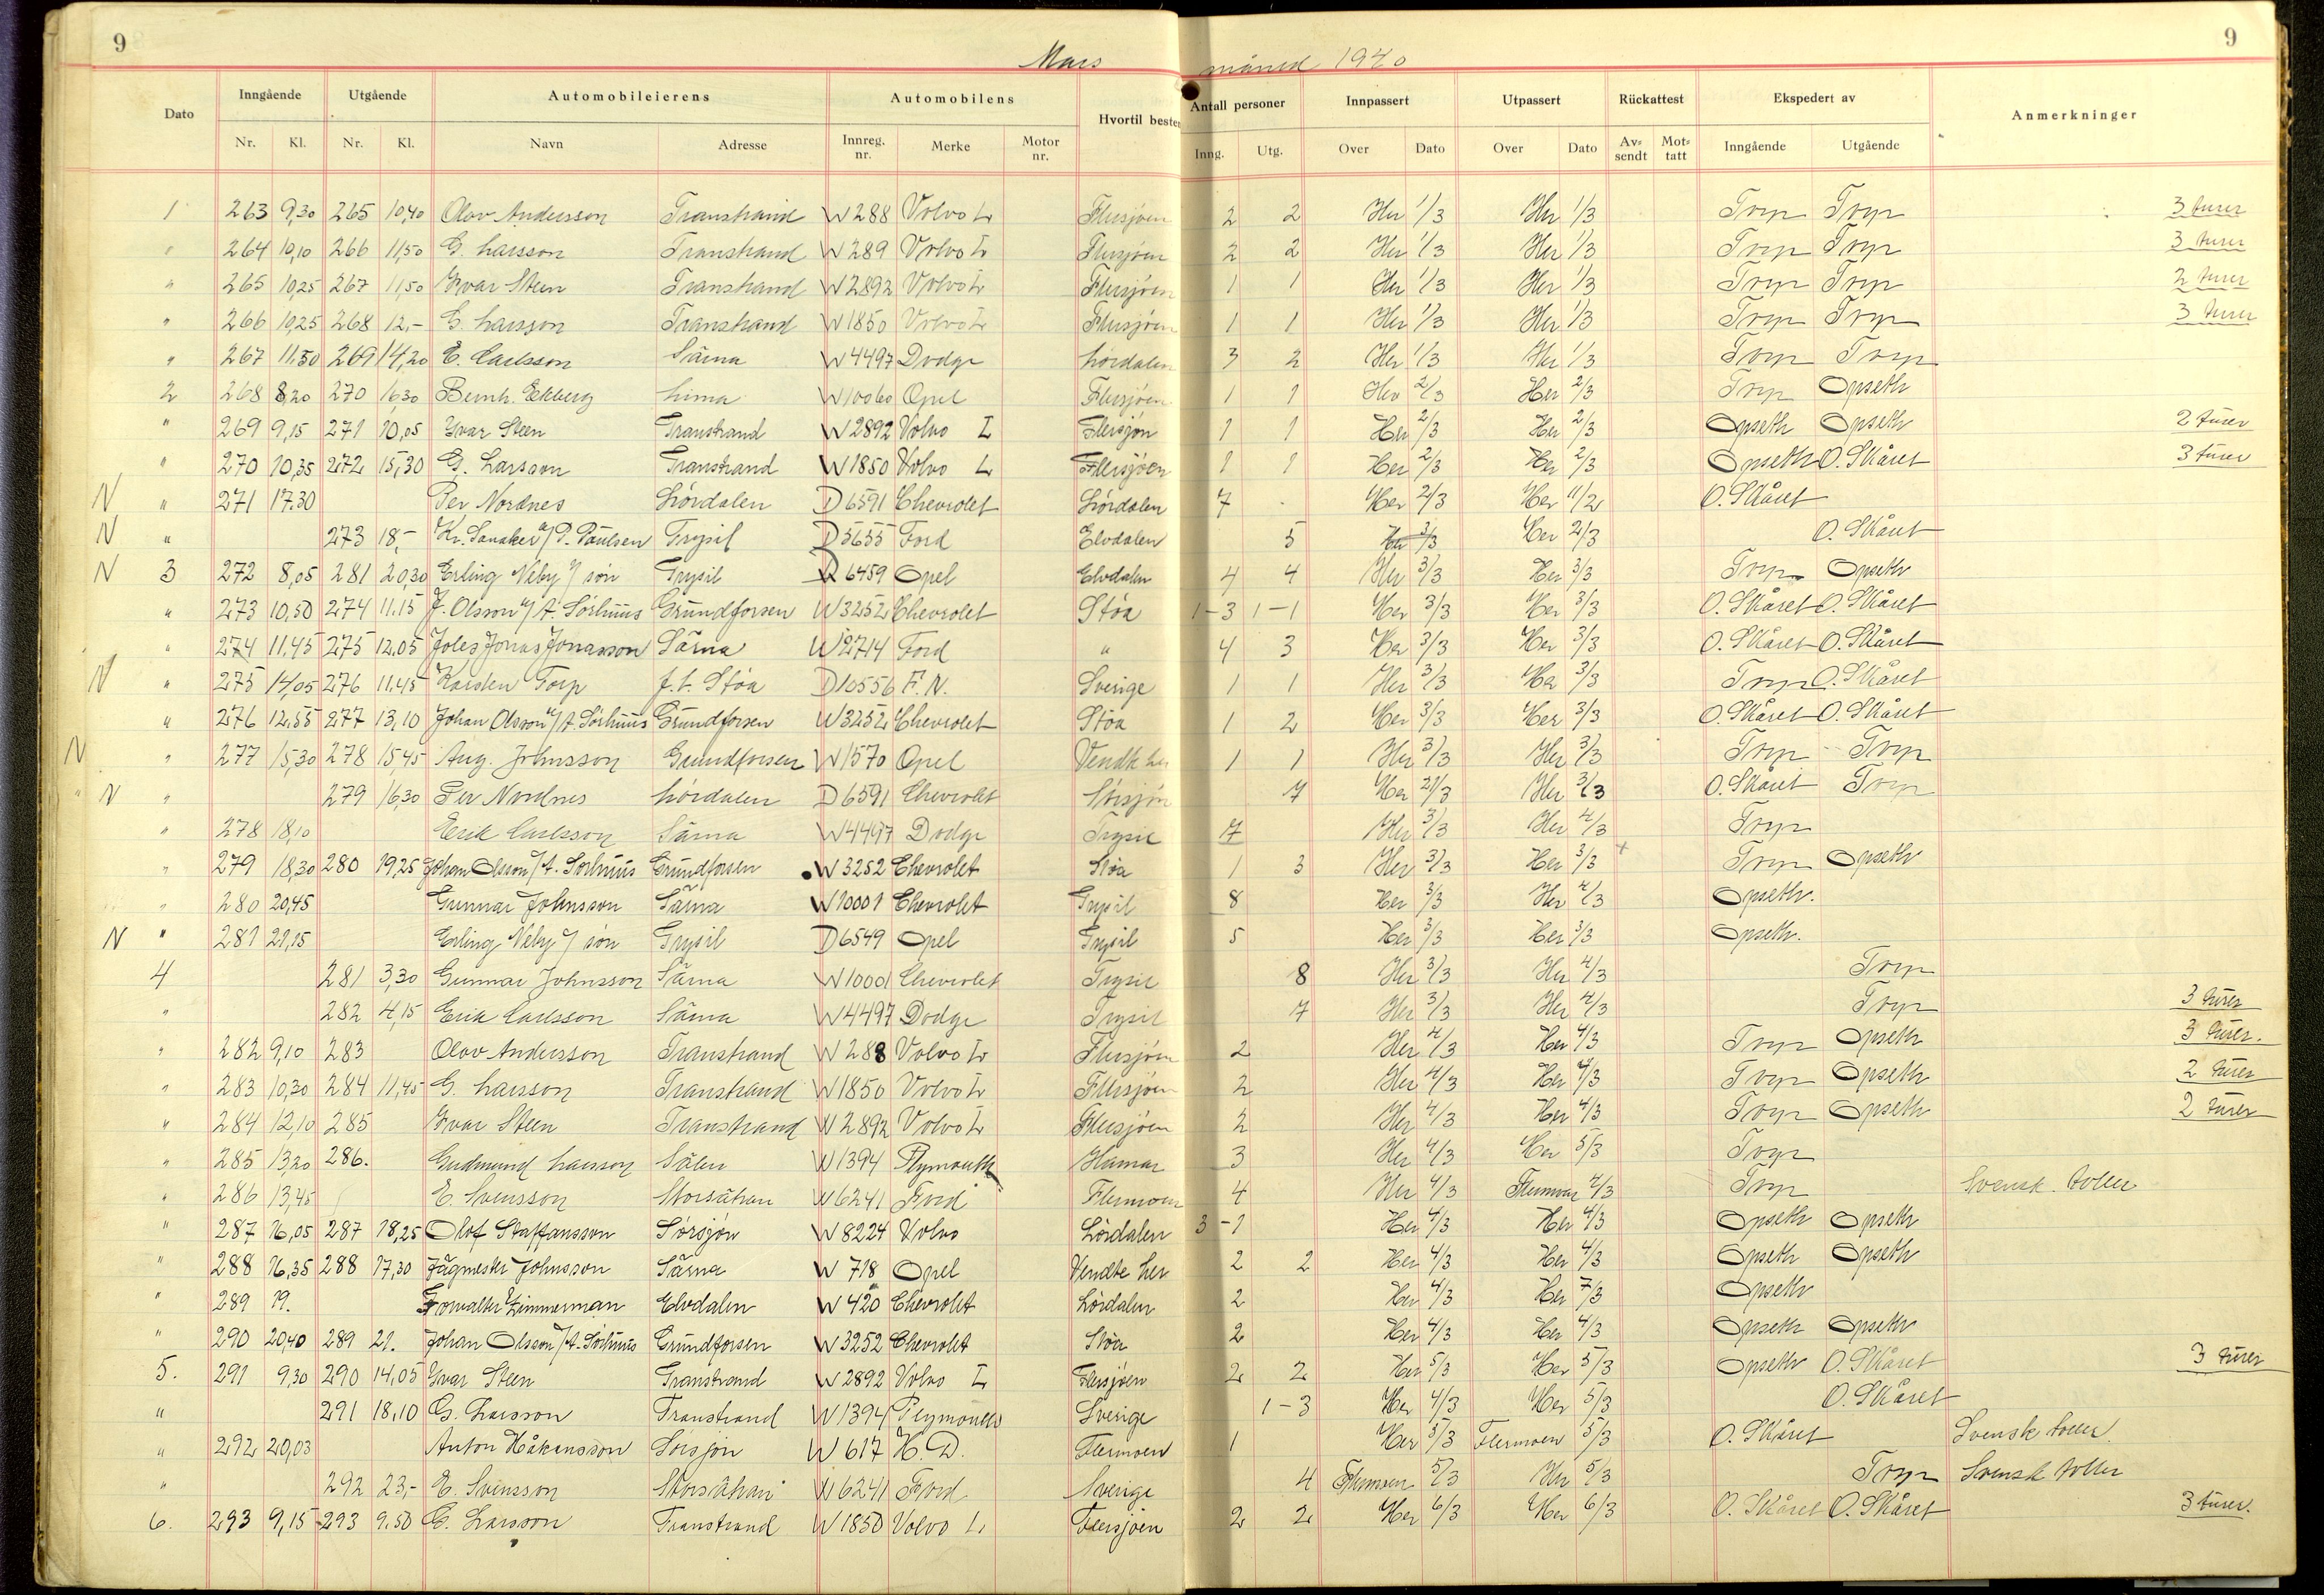 9 9
Mars måned 1940
Dato Inngående Utgående Automobileierens Automobilens Hvortil bestem Antall personer Innpassert Utpassert Rückattest Ekspedert av Anmerkninger
Nr. Kl. Nr. Kl. Navn Adresse Innreg. nr. Merke Motor nr. Inng. Utg. Over Dato Over Dato Av-sendt Mot-tatt Inngående Utgående
1 263 9,30 265 10,40 Olov Andersson Transtrand W288 Volvo L Flersjøen 2 2 Her 1/3 Her 1/3 Torp Torp 3 turer
" 264 10,10 266 11,50 G. Larsson Transtrand W289 Volvo L Flersjøen 2 2 Her 1/3 Her 1/3 Torp Torp 3 turer
" 265 10,25 267 11,50 Yvar Steen Transtrand W2892 Volvo L Flersjøen 1 1 Her 1/3 Her 1/3 Torp Torp 2 turer
" 266 10,25 268 12,- G. Larsson Transtrand W1850 Volvo L Flersjøen 1 1 Her 1/3 Her 1/3 Torp Torp 3 turer
" 267 11.50 269 14,20 E. Carlsson Särna W4497 Dodge Lørdalen 3 2 Her 1/3 Her 1/3 Torp Torp
2 268 8,20 270 16,30 Bernh. Ekberg Lima W10060 Opel Flersjøen 1 1 Her 2/3 Her 2/3 Torp Opseth
" 269 9,15 271 10,05 Yvar Steen Transtrand W2892 Volvo L Flersjøn 1 1 Her 2/3 Her 2/3 Opseth Opseth 2 turer
" 270 10,35 272 15,30 G. Larsson Transtrand W1850 Volvo L Flersjøen 1 1 Her 2/3 Her 2/3 Opseth O. Skåret 3 turer
N " 271 17.30 Per Nordnes Lørdalen D6591 Chevrolet Lørdalen 7 - Her 2/3 Her 11/2 O. Skåret
N " 273 18,- Kr. Sanaker a/ P. Paulsen Trysil D5655 Ford Elvdalen 5 Her 3/3 Her 2/3 O. Skåret
N 3 272 8,05 281 20,30 Erling Neby / søn Trysil 6459 Opel Elvdalen 4 4 Her 3/3 Her 3/3 Torp Opseth
" 273 10,50 274 11.15 J. Olsson a/ A. Sörhuus Grundforsen W3252 Chevrolet Støa 1-3 1-1 Her 3/3 Her 3/3 O. Skåret O. Skåret
" 274 11.45 275 12.05 Joles Jonas Jonasson Särna W2714 Ford " 4 3 Her 3/3 Her 3/3 O. Skåret O. Skåret
N " 275 14,05 276 11.45 Karsten Torp f.t. Støa D10556 F.N. Sverige 1 1 Her 3/3 Her 3/3 Torp O. Skåret
" 276 12.55 277 13,10 Johan Olsson a/ A. Sörhuus Grundforsen W3252 Chevrolet Støa 1 2 Her 3/3 Her 3/3 O. Skåret O. Skåret
N " 277 15,30 278 15,45 Aug. Johnsson Grundforsen W1570 Opel Vendte her 1 1 Her 3/3 Her 3/3 Torp - Torp
N " 279 16,30 Per Nordnes Lørdalen D6591 Chevrolet Sörsjön 7 Her 2/3 Her 3/3 O. Skåret Torp
" 278 18,10 Erik Carlsson Särna W4497 Dodge Trysil 7 Her 3/3 Her 4/3 Torp
" 279 18,30 280 19,25 Johan Olsson / A. Sörhuus Grundforsen W3252 Chevrolet Støa 1 3 Her 3/3 Her 3/3 + Torp Opseth
" 280 20,45 Gunnar Johnsson Särna W10001 Chevrolet Trysil 8 Her 3/3 Her 4/3 Opseth.
N " 281 21,15 Erling Neby / søn Trysil D6549 Opel Trysil 5 Her 3/3 Her 3/3 Opseth.
4 281 3,30 Gunnar Johnsson Särna W10001 Chevrolet Trysil 8 Her 3/3 Her 4/3 Torp
" 282 4,15 Erik Carlsson Särna W4497 Dodge Trysil 7 Her 3/3 Her 4/3 Torp 3 turer
" 282 9,10 283 Olov Andersson Transtrand W288 Volvo L Flersjøen 2 Her 4/3 Her 4/3 Torp Opseth 3 turer.
" 283 10,30 284 11,45 G. Larsson Transtrand W1850 Volvo L Flersjøen 2 Her 4/3 Her 4/3 Torp Opseth 2 turer
" 284 12,10 285 Yvar Steen Transtrand W2892 Volvo L Flersjøen 2 Her 4/3 Her 4/3 Torp Opseth 2 turer
" 285 13,20 286. Gudmund Larsson Sälen W1394 Plymouth Hamar 3 Her 4/3 Her 5/3 Torp
" 286 13,45 E. Svensson Storsätran W6241 Ford Flermoen 4 Her 4/3 Flermoen 4/3 Torp Svensk. toller
" 287 16,05 287 18,25 Olof Staffansson Sörsjön W8224 Volvo Lördalen 3-1 Her 4/3 Her 4/3 Opseth Opseth
" 288 16,35 288 17,30 Jägmester Johnsson Särna W718 Opel Vendte her 2 2 Her 4/3 Her 4/3 Opseth Opseth
" 289 19. Forvalter Zimmerman Elvdalen W420 Chevrolet Lördalen 2 Her 4/3 Her 7/3 Opseth
" 290 20,40 289 21. Johan Olsson / A. Sörhuus Grundforsen W3252 Chevrolet Støa 2 Her 4/3 Her 4/3 Opseth Opseth
5. 291 9,30 290 14,05 Yvar Steen Transtrand W2892 Volvo L Flersjøen 2 2 Her 5/3 Her 5/3 Opseth O. Skåret 3 turer
" 291 18,10 G. Larsson Transtrand W1394 Plymouth Sverige 1-3 Her 4/3 Her 5/3 O. Skåret
" 292 20,03 Anton Håkansson Sörsjön W617 H.D. Flermoen 1 Her 5/3 Flermoen 5/3 O. Skåret Svensk toller.
" 292 23,- E. Svensson Storsätran W6241 Ford Sverige 4 Flermoen 5/3 Her 5/3 Torp Svensk toller
6. 293 9,15 293 9.50 G. Larsson Transtrand W1850 Volvo L. Flersjøen 2 2 Her 6/3 Her 6/3 O. Skåret O. Skåret 3 turer.